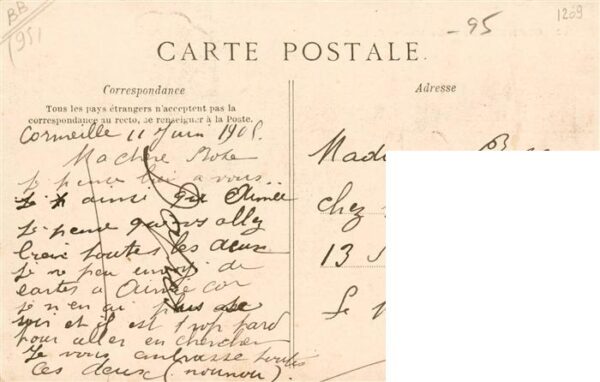 BB
1951
-95
1209
CARTE POSTALE.
Correspondance
Tous les pays étrangers n'acceptent pas la
correspondance au recto, se renseigner à la Poste.
Cormeille 11 Juin 190
Ma chère Rose
je pense bien a vous
ainsi que Aimée
je pense que vous allez
bien toutes les deux
je ne peu envoyé de
cartes a Aimée car
je n'en ai plus ce
soir et il est trop tard
pour aller en chercher
Je vous embrasse toutes
les deux (nounou)
Adresse
Mad
chez
13
Le